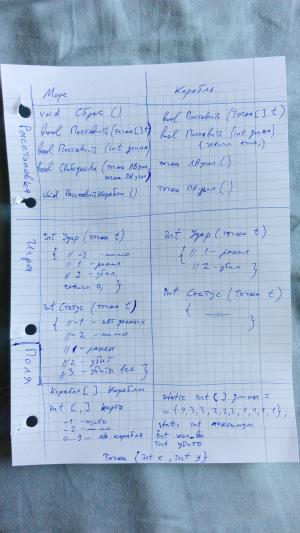 Море
Корабль
Расстановка
void Сброс ()
bool Поставить (точка[] t)
bool Поставить (int длина)
bool Свободная (точка ЛВугол,
точка ПНугол)
void РасставитьКорабли ()
bool Поставить (точка[] t)
bool Поставить (int длина)
точка ЛВугол ()
точка ПНугол ()
Игра
int Удар (точка t)
{ // -2 - мимо
// 1 - ранил
// 2 - убил
return 0; }
int Статус (точка t)
{ // -1 - нет данных
// -2 - мимо
// 1 - ранен
// 2 - убит
// 3 - убиты все }
int Удар (точка t)
{ // 1 - ранил
// 2 - убил }
int Статус (точка t)
{
}
Поля
Корабль [] Корабли
int [,] карта
-1 - пусто
-2 - мимо
0..9 - № корабля
static int [] длины =
= {4,3,3,2,2,2,1,1,1,1};
static int максимум
int кол-во
int убито
Точка {int x, int y}